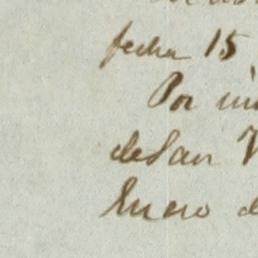 fecha 15
Por
de San V
Enero d